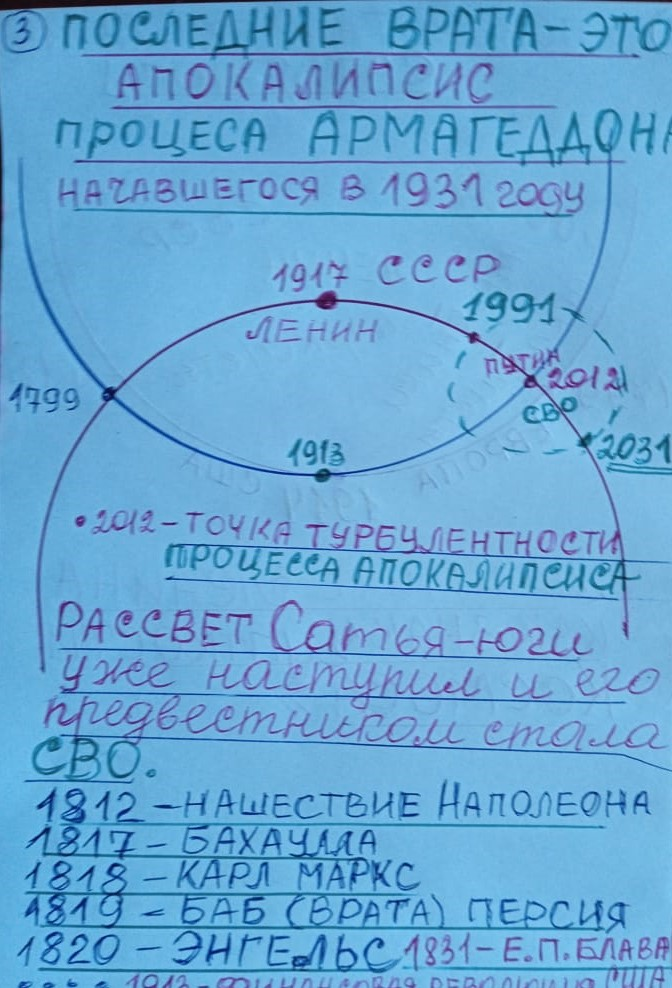 3 ПОСЛЕДНИЕ ВРАТА-ЭТО
АПОКАЛИПСИС
ПРОЦЕСА АРМАГЕДДОНА
НАЧАВШЕГОСЯ В 1931 году
1917 СССР
ЛЕНИН
1991
ПУТИН
2012
1799
СВО
2031
1913
• 2012-ТОЧКА ТУРБУЛЕНТНОСТИ
ПРОЦЕССА АПОКАЛИПСИСА
РАССВЕТ Сатья-юги
уже наступил и его
предвестником стала
СВО.
1812-НАШЕСТВИЕ НАПОЛЕОНА
1817-БАХАУЛЛА
1818-КАРЛ МАРКС
1819-БАБ (ВРАТА) ПЕРСИЯ
1820-ЭНГЕЛЬС 1831-Е.П.БЛАВА
1913-ФИНАНСОВАЯ РЕВОЛЮЦИЯ США